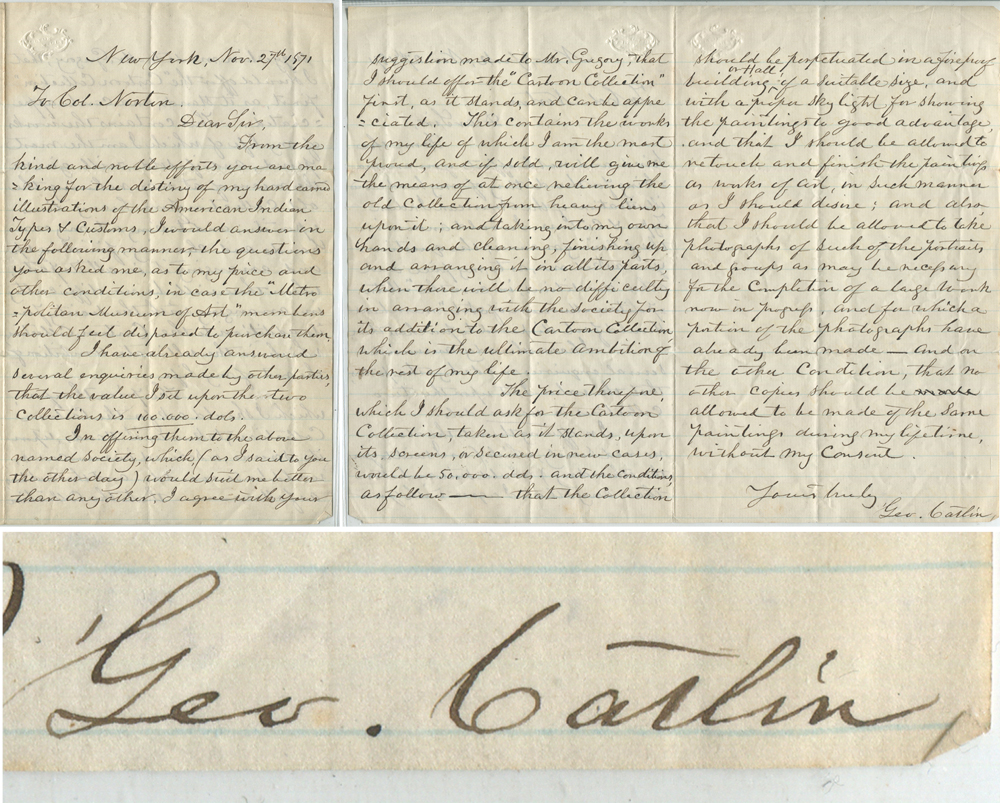 New York, Nov. 27th 1871
To Col. Norton.
Dear Sir,
From the
kind and noble efforts you are ma
=king for the distiny of my hard earned
illustrations of the American Indian
Types & Customs, I would answer in
the following manner, the questions
you asked me, as to my price and
other conditions, in case the "Metro
=politan Museum of Art" members
should feel disposed to purchase them.
I have already answered
several enquiries made by other parties,
that the value I set upon the two
Collections is 100.000. dols.
In offering them to the above
named Society, which, (as I said to you
the other day) would suit me better
than any other, I agree with your
suggestion made to Mr. Gregory, that
I should offer the "Cartoon Collection"
first, as it stands, and can be appre
=ciated. This contains the works
of my life of which I am the most
proud, and if sold, will give me
the means of at once relieving the
old Collection from heavy liens
upon it; and taking into my own
hands and cleaning, finishing up
and arranging it in all its parts,
when there will be no difficulty
in arranging with the Society for
its addition to the Cartoon Collection
which is the ultimate ambition of
the rest of my life.
The price therefore,
which I should ask for the Cartoon
Collection, taken as it stands, upon
its screens, or secured in new cases,
would be 50.000. dols. and the conditions
as follow — that the Collection
should be perpetuated in a fireproof
or Hall,
building of a suitable size, and
with a proper sky light for showing
the paintings to good advantage,
and that I should be allowed to
retouch and finish the paintings
as works of art, in such manner
as I should desire; and also
that I should be allowed to take
photographs of such of the portraits
and groups as may be necessary
for the Completion of a large Work
now in progress, and for which a
portion of the photographs have
already been made — And on
the other Condition, that no
other copies should be made
allowed to be made of the same
paintings during my lifetime,
without my Consent.
Yours truly
Geo. Catlin,
Geo. Catlin,